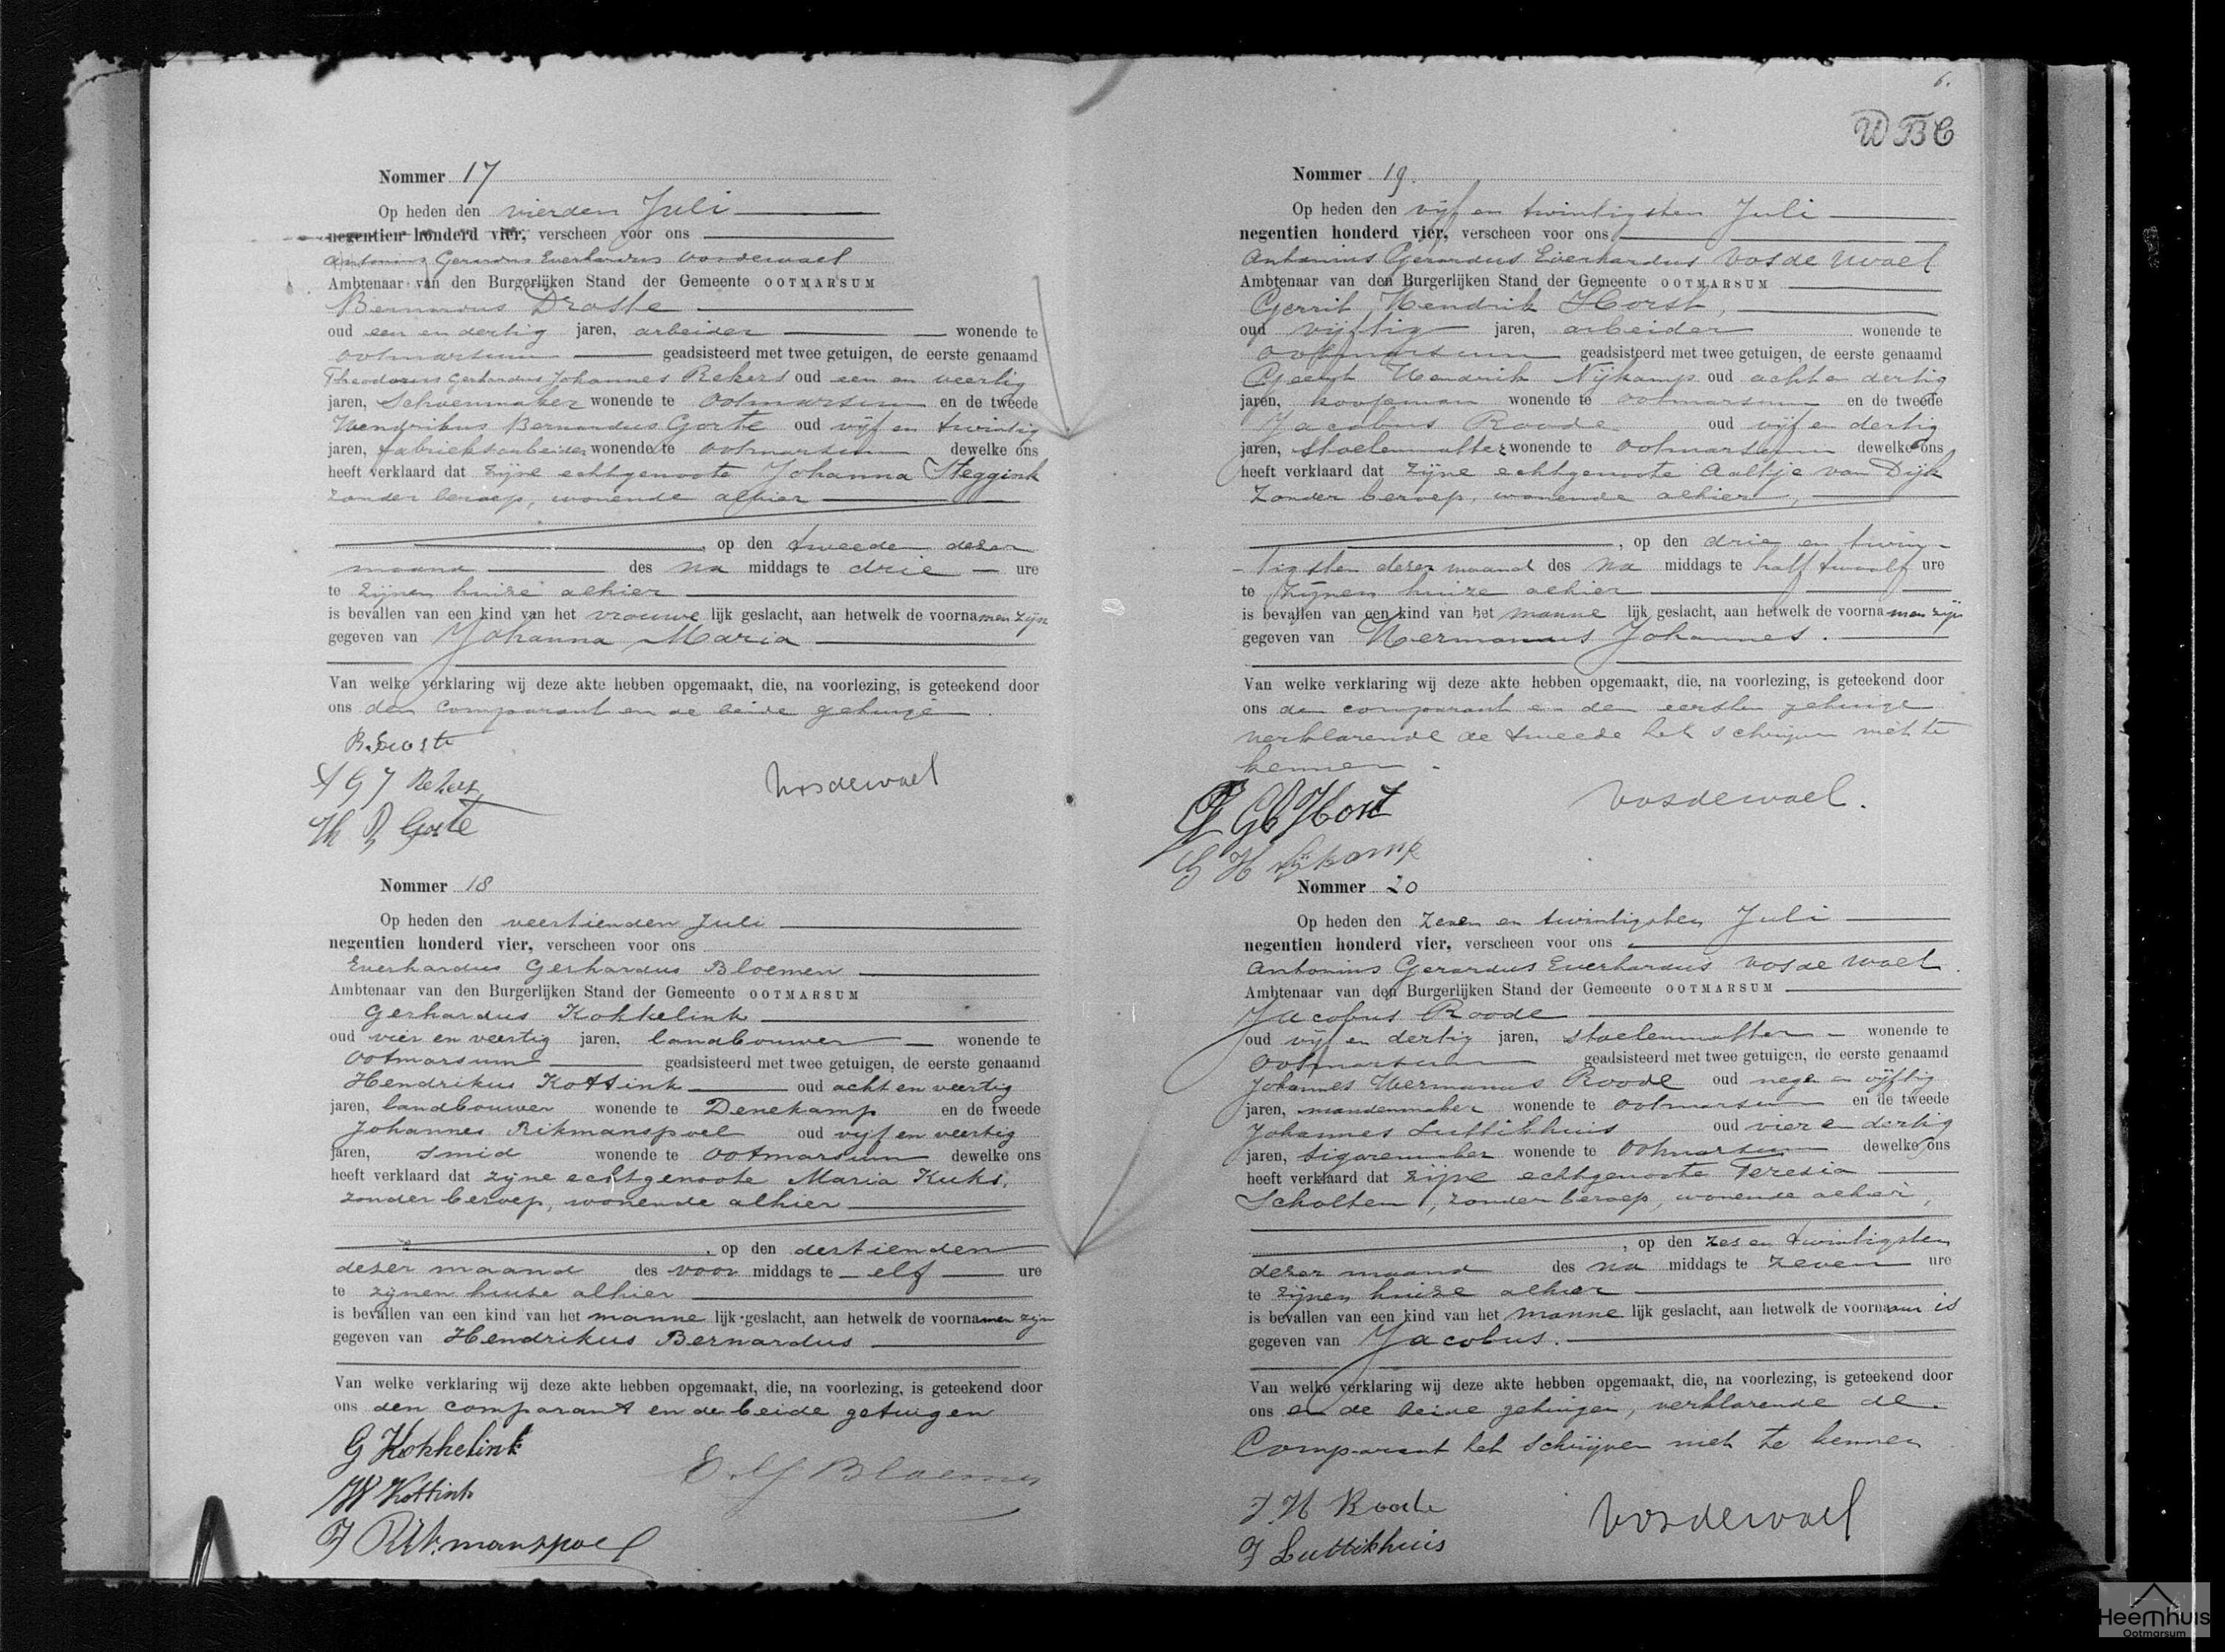 Nommer 17
Op heden den vierden Juli
negentien honderd vier, verscheen voor ons
Antonius Gerardus Everhardus Vosdewael
Ambtenaar van den Burgerlijken Stand der Gemeente OOTMARSUM
Bernardus Droste
oud een en dertig jaren, arbeider wonende te
Ootmarsum geadsisteerd met twee getuigen, de eerste genaamd
Theodorus Gerhardus Johannes Rekers oud een en veertig
jaren, Schoenmaker wonende te Ootmarsum en de tweede
Hendrikus Bernardus Gorte oud vijf en twintig
jaren, fabrieksarbeider wonende te Ootmarsum dewelke ons
heeft verklaard dat zijne echtgenoote Johanna Steggink
zonder beroep, wonende alhier
, op den tweede dezer
maand des na middags te drie ure
te zijnen huize alhier
is bevallen van een kind van het vrouwe lijk geslacht, aan hetwelk de voornamen zijn
gegeven van Johanna Maria
Van welke verklaring wij deze akte hebben opgemaakt, die, na voorlezing, is geteekend door
ons den comparant en de beide getuige
B. Droste
G J Rekers
H B Gorte
Vosdewael
Nommer 18
Op heden den veertienden Juli
negentien honderd vier, verscheen voor ons
Everhardus Gerhardus Bloemen
Ambtenaar van den Burgerlijken Stand der Gemeente OOTMARSUM
Gerhardus Kokkelink
oud vier en veertig jaren, landbouwer wonende te
Ootmarsum geadsisteerd met twee getuigen, de eerste genaamd
Hendrikus Kottink oud acht en veertig
jaren, landbouwer wonende te Denekamp en de tweede
Johannes Rikmanspoel oud vijf en veertig
jaren, smid wonende te Ootmarsum dewelke ons
heeft verklaard dat zijne echtgenoote Maria Kuks,
zonder beroep, wonende alhier
, op den dertienden
dezer maand des voor middags te elf ure
te zijnen huize alhier
is bevallen van een kind van het manne lijk geslacht, aan hetwelk de voornamen zijn
gegeven van Hendrikus Bernardus
Van welke verklaring wij deze akte hebben opgemaakt, die, na voorlezing, is geteekend door
ons den comparant en de beide getuigen
G Kokkelink
H Kottink
J Rikmanspoel
Bloemen
6.
WBC
Nommer 19.
Op heden den vijf en twintigsten Juli
negentien honderd vier, verscheen voor ons
Antonius Gerardus Everhardus Vosdewael
Ambtenaar van den Burgerlijken Stand der Gemeente OOTMARSUM
Gerrit Hendrik Horst,
oud vijftig jaren, arbeider wonende te
Ootmarsum geadsisteerd met twee getuigen, de eerste genaamd
Geert Hendrik Nijkamp oud acht en dertig
jaren, koopman wonende te Ootmarsum en de tweede
Jacobus Roode oud vijf en dertig
jaren, stoelenmatter wonende te Ootmarsum dewelke ons
heeft verklaard dat zijne echtgenoote Aaltje van Dijk
zonder beroep, wonende alhier,
, op den drie en twin-
-tigsten dezer maand des na middags te half twaalf ure
te zijnen huize alhier
is bevallen van een kind van het manne lijk geslacht, aan hetwelk de voornamen zijn
gegeven van Hermannus Johannes.
Van welke verklaring wij deze akte hebben opgemaakt, die, na voorlezing, is geteekend door
ons den comparant en den eersten getuige
verklarende de tweede het schrijven niet te
kennen.
Horst
G H Nijkamp
Vosdewael.
Nommer 20
Op heden den zeven en twintigsten Juli
negentien honderd vier, verscheen voor ons
Antonius Gerardus Everhardus Vosdewael
Ambtenaar van den Burgerlijken Stand der Gemeente OOTMARSUM
Jacobus Roode
oud vijf en dertig jaren, stoelenmatter wonende te
Ootmarsum geadsisteerd met twee getuigen, de eerste genaamd
Johannes Hermanus Roode oud negen en vijftig
jaren, mandenmaker wonende te Ootmarsum en de tweede
Johannes Luttikhuis oud vier en dertig
jaren, sigarenmaker wonende te Ootmarsum dewelke ons
heeft verklaard dat zijne echtgenoote Teresia
Scholten, zonder beroep, wonende alhier,
, op den zes en twintigsten
dezer maand des na middags te zeven ure
te zijnen huize alhier
is bevallen van een kind van het manne lijk geslacht, aan hetwelk de voornaam is
gegeven van Jacobus.
Van welke verklaring wij deze akte hebben opgemaakt, die, na voorlezing, is geteekend door
ons en de beide getuigen, verklarende de
Comparant het schrijven niet te kennen
J. H Roode
J Luttikhuis
Vosdewael
Heemhuis
Ootmarsum